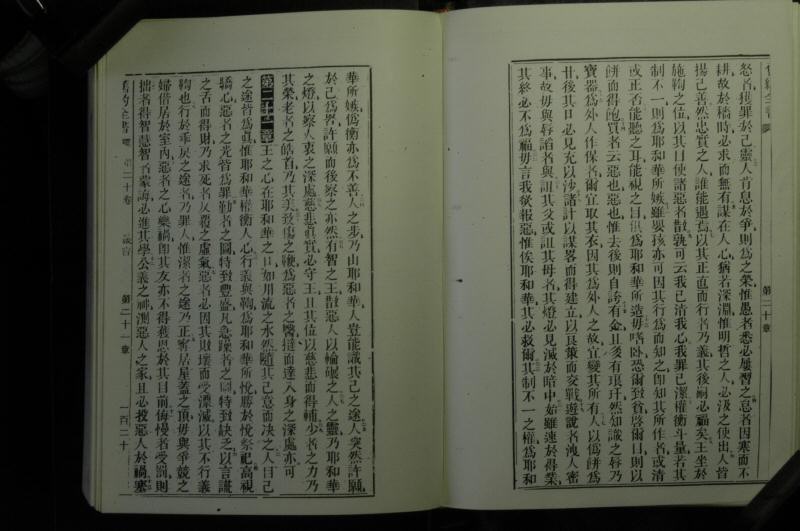 怒者獲罪於己靈人肯息於爭則爲之榮惟愚者悉必屢習之怠者因寒而不
耕故於穡時必求而無有謀在人心病若深淵惟明哲之人必汲之使出人皆
揚己善然忠實之人誰能遇焉以其正直而行者乃義其後嗣必福矣王坐於
施鞫之位以其目使諸惡者散孰可云我已清我心我罪已潔權衡斗量若其
制不一則爲耶和華所嫉雖嬰孩亦可因其行爲而知之卽知其所作者或清
或正否能聽之耳能視之目俱爲耶和華所造毋嗜臥恐爾對貧啓爾目則以
餅而得飽買者云惡也惡也惟去後則自誇有金且多有琅玕然知識之唇乃
寶器爲外人作保者爾宜取其衣因其爲外人之故宜變其所有人以僞餅爲
甘後其口必見充以沙諸計以謀畧而得建立以良策而交戰遊說者洩人密
事故毋與唇謟者與詛其父或詛其母者其燈必見滅於暗中始雖速於得業
其終必不爲福毋言我欲報惡惟俟耶和華其必救爾其制不一之權爲耶和
第二十章
華所嫉僞衡亦爲不善人之步乃由耶和華人豈能識其己之途人突然許願
於己爲罟許願而後察之亦然有智之王散惡人以輪碾之人之靈乃耶和華
之燈以察人衷之深處慈悲眞實必守王且其位以慈悲而得輔少者之力乃
其榮老者之皓首乃其美致傷之鞭爲惡者之醫撻而達入身之深處亦可
第二十一章 王之心在耶和華之手如用流之水然隨其己意而决之人目己
之途皆爲眞惟耶和華權衡人心行義與鞫爲耶和華所悅勝於悅祭祀高視
驕心惡者之光皆爲罪勤者之圖特致豐盛凡急躁者之圖特致缺乏以言謊
之舌而得財乃求死者反覆之虛氣惡者必因其財壞而受漂滅以其不行義
鞫也行於乖戾之途者乃罪人惟潔者之途乃正寧居屋蓋之頂毋與爭競之
婦偕居於室內惡者之心樂禍卽其友亦不得獲恩於其目前侮慢者受罰則
拙者得智慧智者蒙誨必進其學公義之神測惡人之家且必投惡人於禍塞
第二十卷
第二十一章
一百二十